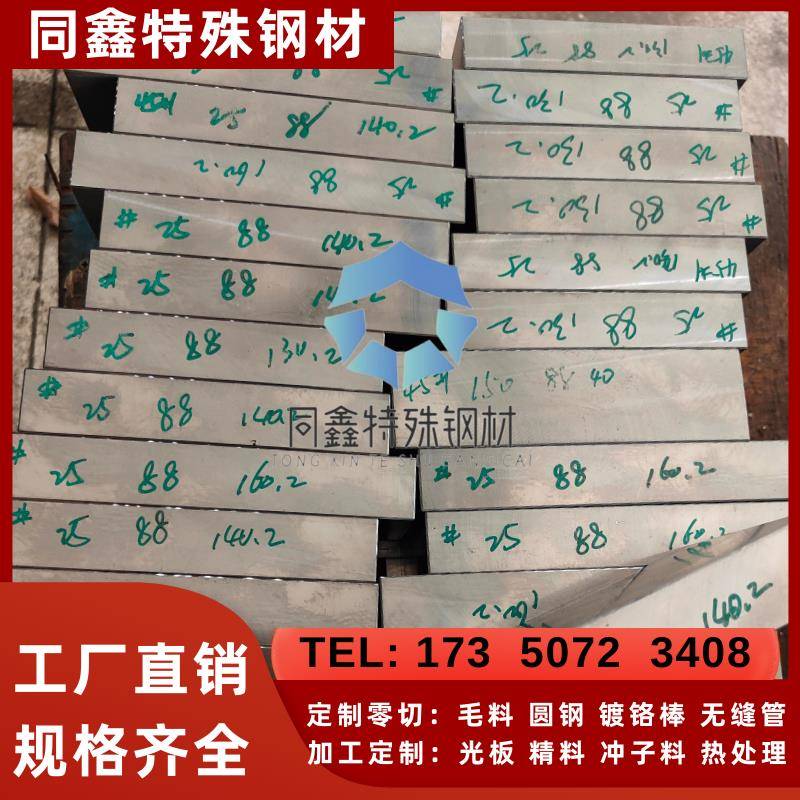 同鑫特殊钢材
# 25 88
25 88 140.2
# 25 88 160.2
# 25 88 140.2
# 25 88
# 25 88 130.2
# 25 88 140.2
# 25 88 160.2
# 25 88 140.2
25 88 130.2
# 25 88 130.2
# 25 88 130.2
# 25 88 130.2
25 88 130.2
# 25 88 130.2
150 88 40
# 25 88 160.2
# 25 88 160.2
140.2
同鑫特殊钢材
工厂直销
规格齐全
TEL: 173 5072 3408
定制零切：毛料 圆钢 镀铬棒 无缝管
加工定制：光板 精料 冲子料 热处理